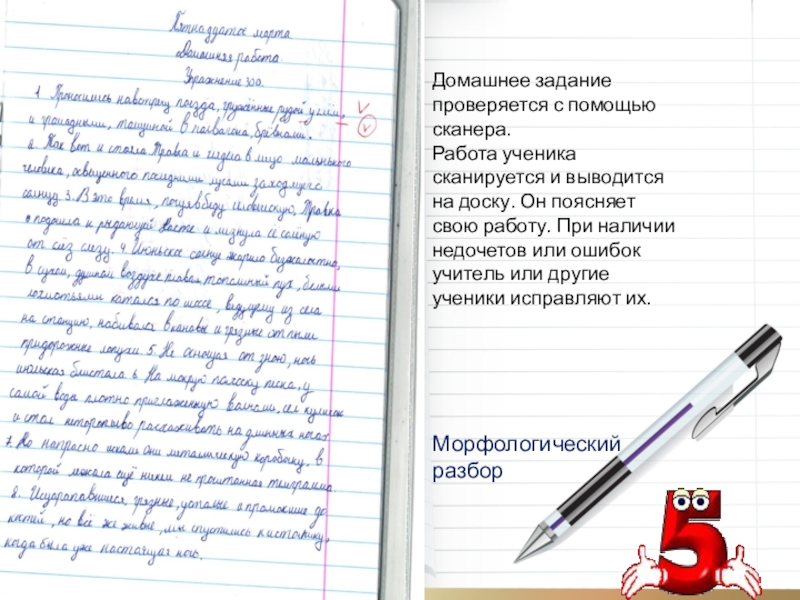 Пятнадцатое марта
Домашняя работа
Упражнение 300.
1. Проносились навстречу поезда, гружённые рудой, углём,
и громадными, толщиной в полвагона, брёвнами.
2. Так вот и стояла Правка и глядела в лицо маленького
человека, освещенного последними лучами заходящего
солнца. 3. В это время, почуяв беду человеческую, Правка
подошла к рыдающей Насте и лизнула её солёную
от слёз щеку. 4. Июньское солнце жарило безжалостно,
в сухом, душном воздухе плавал тополиный пух, белыми
лохмотьями катался по шоссе, ведущему из села
на станцию, набивался в канавы и грязные от пыли
придорожные лопухи. 5. Не остывшая от зноя, ночь
июльская блистала. 6. На мокрую полоску песка, у
самой воды плотно приглаженную волнами, сел кулик
и стал неторопливо расхаживать на длинных ногах.
7. Но напрасно искали они металлическую коробочку, в
которой лежала ещё никем не прочитанная телеграмма.
8. Исцарапавшиеся, грязные, усталые и промокшие до
костей, но всё же живые, мы спустились к источнику,
когда была уже настоящая ночь.
Домашнее задание
проверяется с помощью
сканера.
Работа ученика
сканируется и выводится
на доску. Он поясняет
свою работу. При наличии
недочетов или ошибок
учитель или другие
ученики исправляют их.
Морфологический
разбор
5